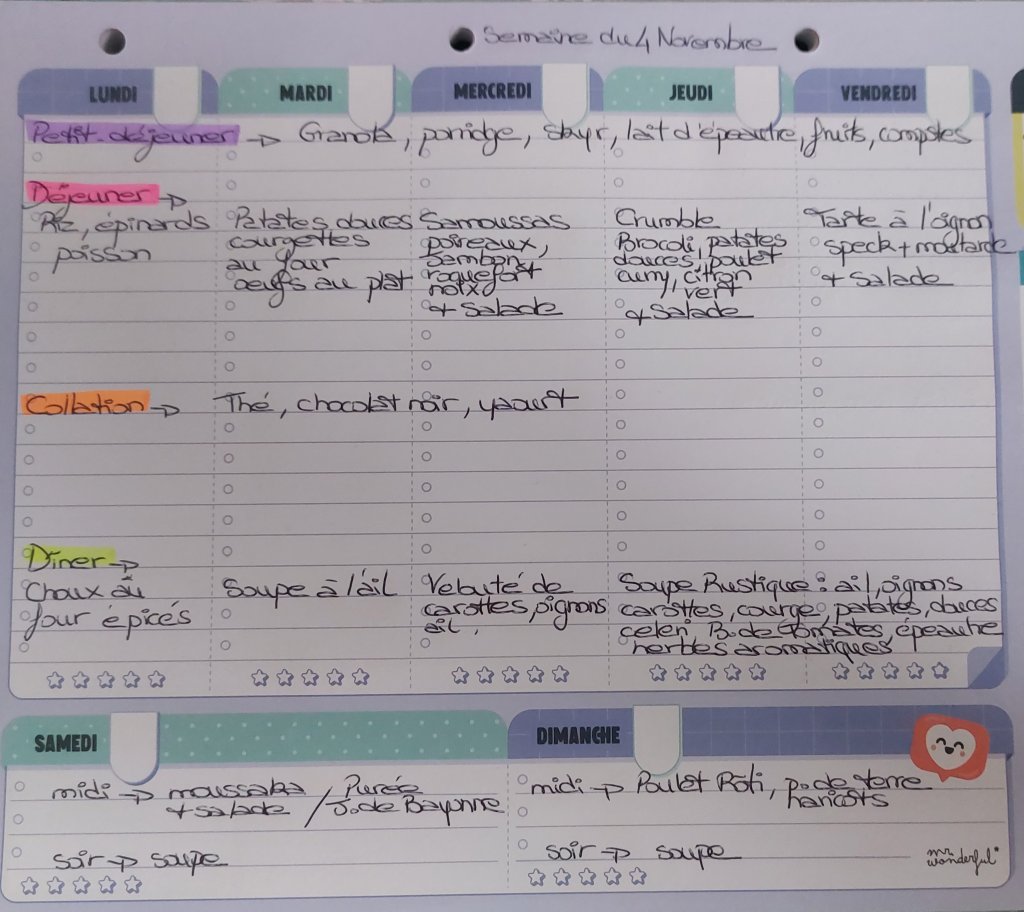 Semaine du 4 Novembre
LUNDI
MARDI
MERCREDI
JEUDI
VENDREDI
Petit-déjeuner → Granola, porridge, skyr, lait d'épeautre, fruits, compotes
Déjeuner →
Riz, épinards
poisson
Patates douces
courgettes
au four
oeufs au plat
Samoussas
poireaux,
Jambon,
roquefort
noix
+ Salade
Crumble
Brocoli, patates
douces, poulet
curry, citron
vert
+ Salade
Tarte à l'oignon
speck + moutarde
+ Salade
Collation → Thé, chocolat noir, yaourt
Dîner →
Choux au
four épicés
Soupe à l'ail
Velouté de
carottes, oignons
ail,
Soupe Rustique : ail, oignons
carottes, courge, patates, douces
celeri, P. de tomates, épeautre
herbes aromatiques
SAMEDI
midi → moussaka / Purée
+ salade / J. de Bayonne
soir → soupe
DIMANCHE
midi → Poulet Rôti, p. de terre
haricots
soir → soupe
mr. wonderful*